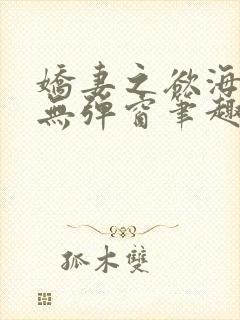 嬌妻之欲海
無彈窗筆趣
孤木雙